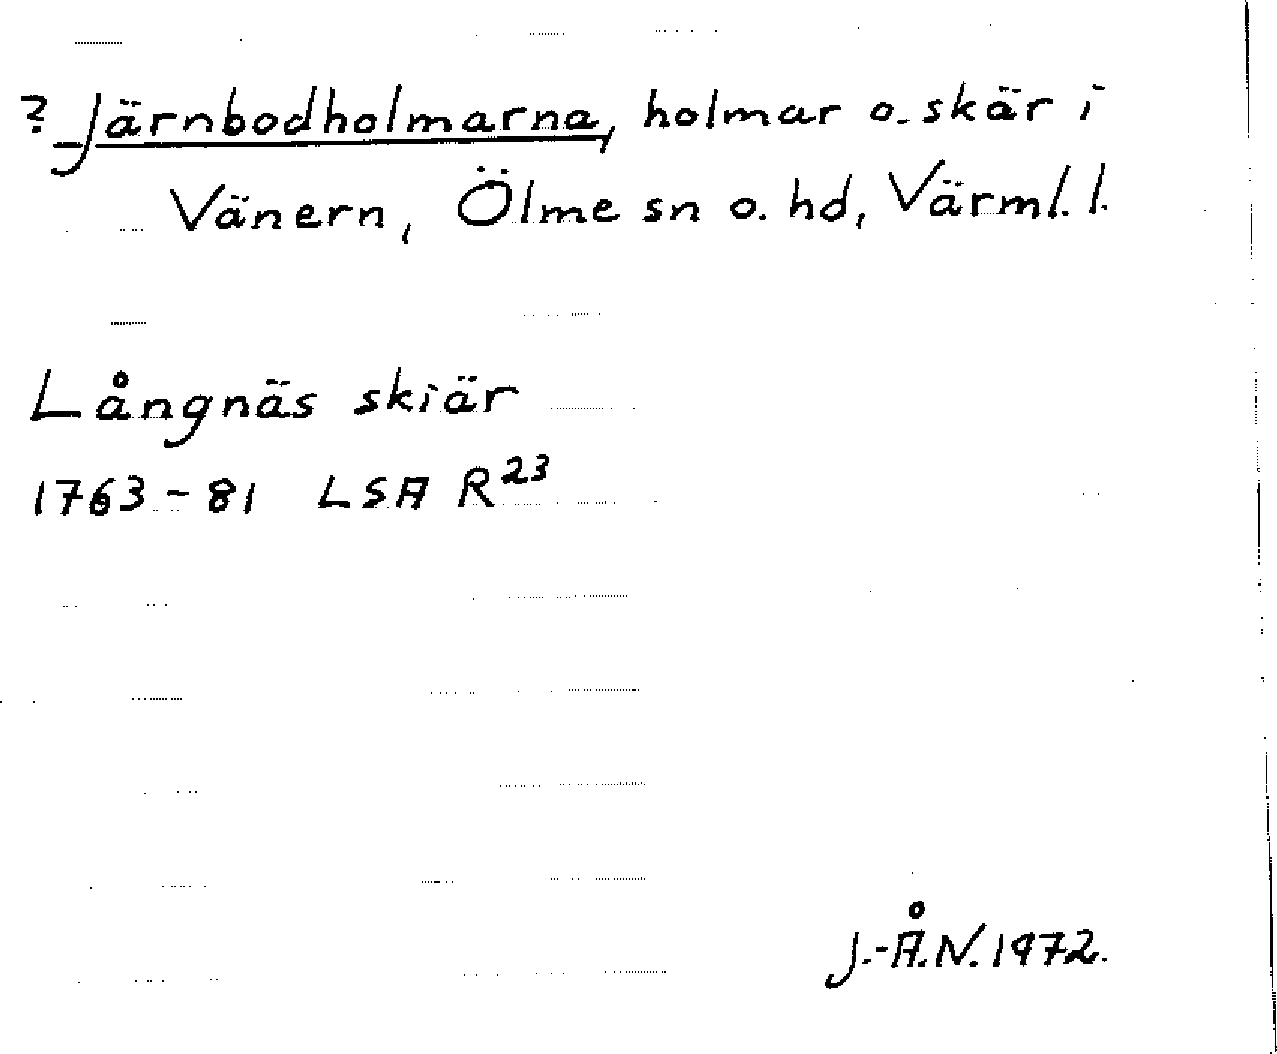 ? Järnbodholmarna, holmar o. skär i
Vänern, Ölme sn o. hd, Värml. l.
Långnäs skiär
1763-81 LSA R23
J.-Å.N. 1972.